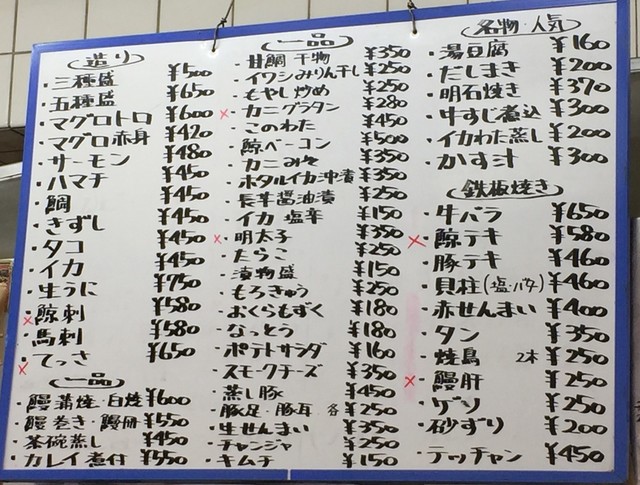 造り
・三種盛 ¥500
・五種盛 ¥650
・マグロトロ ¥600
・マグロ赤身 ¥420
・サーモン ¥480
・ハマチ ¥450
・鯛 ¥450
・きずし ¥450
・タコ ¥450
・イカ ¥450
・生うに ¥750
・鯨刺 ¥580
・馬刺 ¥580
・てっさ ¥650
一品
・鰻蒲焼・白焼 ¥600
・鰻巻き・鰻冊 ¥550
・茶碗蒸し ¥450
・カレイ煮付 ¥550
一品
・甘鯛干物 ¥350
・イワシみりん干し ¥250
・もやし炒め ¥250
・カニグラタン ¥280
・このわた ¥450
・鯨ベーコン ¥500
・カニみそ ¥350
・ホタルイカ沖漬 ¥350
・長芋醤油漬 ¥250
・イカ塩辛 ¥150
・明太子 ¥350
・たらこ ¥250
・漬物盛 ¥150
・もろきゅう ¥250
・おくらもずく ¥180
・なっとう ¥180
・ポテトサラダ ¥160
・スモークチーズ ¥350
・蒸し豚 ¥450
・豚足・豚耳 各¥250
・生せんまい ¥350
・チャンジャ ¥250
・キムチ ¥150
名物・人気
・湯豆腐 ¥160
・だしまき ¥200
・明石焼き ¥370
・牛すじ煮込 ¥300
・イカわた蒸し ¥200
・かす汁 ¥300
鉄板焼き
・牛バラ ¥650
・鯨テキ ¥580
・豚テキ ¥460
・貝柱(塩・バター) ¥460
・赤せんまい ¥400
・タン ¥350
・焼鳥 2本 ¥250
・鰻肝 ¥250
・ゲソ ¥250
・砂ずり ¥200
・テッチャン ¥450